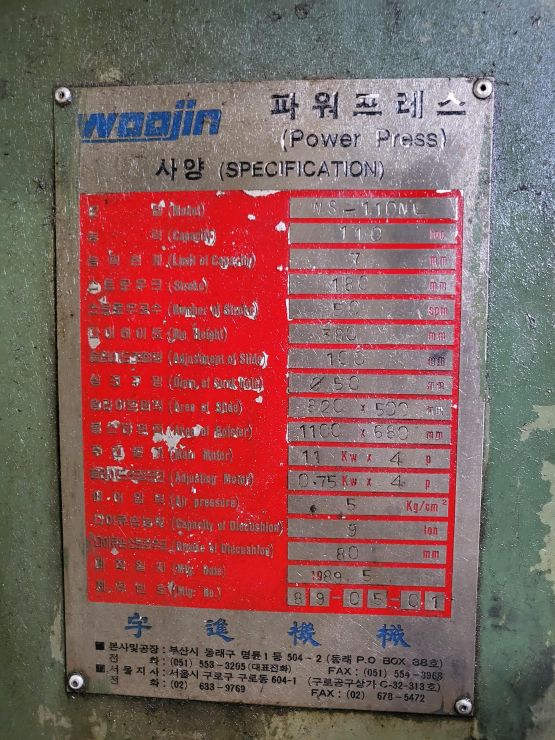 woojin 파워프레스
(Power Press)
사양 (SPECIFICATION)
(Model)
능 력 (Capacity) 110 ton
능력한계 (Limit of Capacity) 7 mm
스트로우크 (Stroke) 180 mm
스트로우크수 (Number of Stroke) 50 spm
다이하이트 (Die Height) mm
(Adjustment of Slide) 100 mm
(Diam. of Shank Hole) Ø50 mm
(Area of Slide) 820 x 500 mm
(Area of Bolster) 1100 x 680 mm
주전동기 (Main Motor) 11 Kw x 4 p
(Adjusting Motor) 0.75 Kw x 4 p
에어압력 (Air pressure) 5 Kg/cm²
(Capacity of Diecushion) 9 ton
(Stroke of Diecushion) 80 mm
제작일자 (Mfg. Date) 1989.5
제작번호 (Mfg. No.) 89-05-01
宇進機械
■ 본사및공장 : 부산시 동래구 명륜1동 504-2 (동래 P.O BOX 38호)
전 화 : (051) 553-3205 (대표전화) FAX : (051) 554-3968
■ 서울지사 : 서울시 구로구 구로동 604-1 (구로공구상가 C-32-313호)
전 화 : (02) 633-9769 FAX : (02) 678-5472